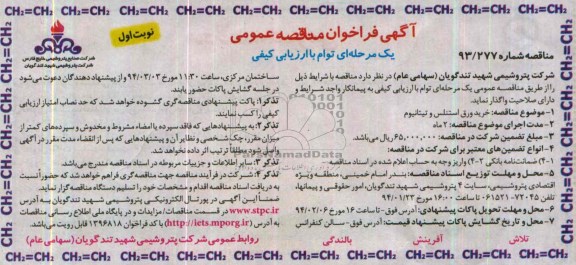 CH₂=CH₂ CH₂=CH₂ CH₂=CH₂ CH₂=CH₂ CH₂=CH₂ CH₂=CH₂ CH₂=CH₂
آگهی فراخوان مناقصه عمومی
نوبت اول
یک مرحله‌ای توام با ارزیابی کیفی
مناقصه شماره ۹۳/۲۷۷
شرکت صنایع پتروشیمی خلیج فارس
شرکت پتروشیمی شهید تندگویان
شرکت پتروشیمی شهید تندگویان (سهامی عام) در نظر دارد مناقصه با شرایط ذیل
را از طریق مناقصه عمومی یک مرحله‌ای توام با ارزیابی کیفی به پیمانکار واجد شرایط و
دارای صلاحیت واگذار نماید.
۱- موضوع مناقصه: خرید ورق استنلس و تیتانیوم
۲- مدت اجرای موضوع مناقصه: ۲ ماه
۳- مبلغ تضمین شرکت در مناقصه: ۶۵,۰۰۰,۰۰۰ ریال می‌باشد.
۴- انواع تضمین‌های معتبر برای شرکت در مناقصه:
۴-۱) ضمانت‌نامه بانکی ۴-۲) واریز وجه به حساب اعلام شده در اسناد مناقصه
۵- محل و مهلت توزیع اسناد مناقصه: بندر امام خمینی، منطقه ویژه
اقتصادی پتروشیمی، سایت ۴ پتروشیمی شهید تندگویان، امور حقوقی و پیمانها،
تلفن ۷۲۰۴۵-۰۶۱۵۲۱ تا ساعت ۱۶:۰۰ مورخ ۹۴/۰۱/۲۳
۶- محل و مهلت تحویل پاکات پیشنهادی: آدرس فوق- تا ساعت ۱۶ مورخ ۹۴/۰۲/۰۶
۷- محل و تاریخ گشایش پاکات پیشنهاد قیمت: آدرس فوق- سالن کنفرانس
ساختمان مرکزی، ساعت ۱۱:۳۰ مورخ ۹۴/۰۳/۰۳ و از پیشنهاد دهندگان دعوت می‌شود
در جلسه گشایش پاکات حضور یابند.
تذکر۱: پاکت پیشنهادی مناقصه‌گری گشوده خواهد شد که حد نصاب امتیاز ارزیابی
کیفی را کسب نمایند.
تذکر۲: به پیشنهادهایی که فاقد سپرده یا امضاء مشروط و مخدوش و سپرده‌های کمتر از
میزان مقرر، چک شخصی و نظایر آن و پیشنهادهایی که پس از انقضاء مدت مقرر در آگهی
واصل شود مطلقا ترتیب اثر داده نخواهد شد.
تذکر۳: سایر اطلاعات و جزییات مربوطه در اسناد مناقصه مندرج می‌باشد.
تذکر۴: شرکت در فرآیند مناقصه جهت مناقصه‌گری فراهم خواهد شد که حضوراً نسبت
به دریافت اسناد مناقصه اقدام و مشخصات خود را تسلیم دستگاه مناقصه گزار نماید.
ضمناً این آگهی در پورتال الکترونیکی پتروشیمی شهید تندگویان به آدرس
www.stpc.ir در قسمت مناقصات/مزایدات و در پایگاه ملی اطلاع رسانی مناقصات
به آدرس (http://iets.mporg.ir) با کد فراخوان ۱۳۹۶۸۱۸ قابل رویت می‌باشد.
روابط عمومی شرکت پتروشیمی شهید تندگویان (سهامی عام)
تلاش آفرینش بالندگی
CH₂=CH₂ CH₂=CH₂ CH₂=CH₂ CH₂=CH₂ CH₂=CH₂ CH₂=CH₂ CH₂=CH₂